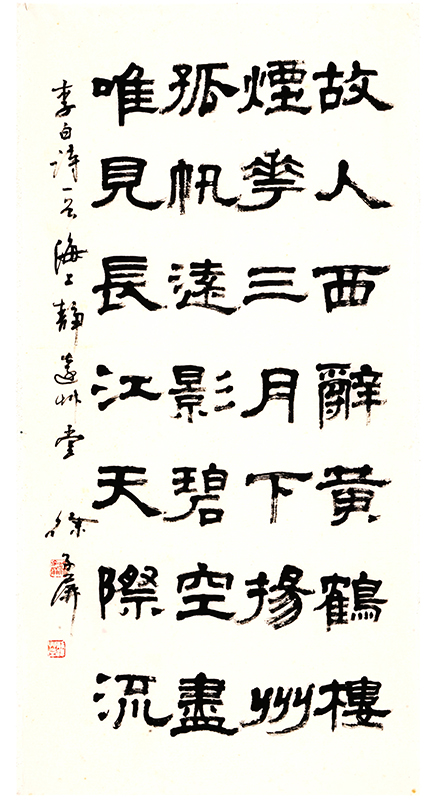 故人西辭黃鶴樓
煙花三月下揚州
孤帆遠影碧空盡
唯見長江天際流
李白詩一首 海上靜遠草堂 徐子屏